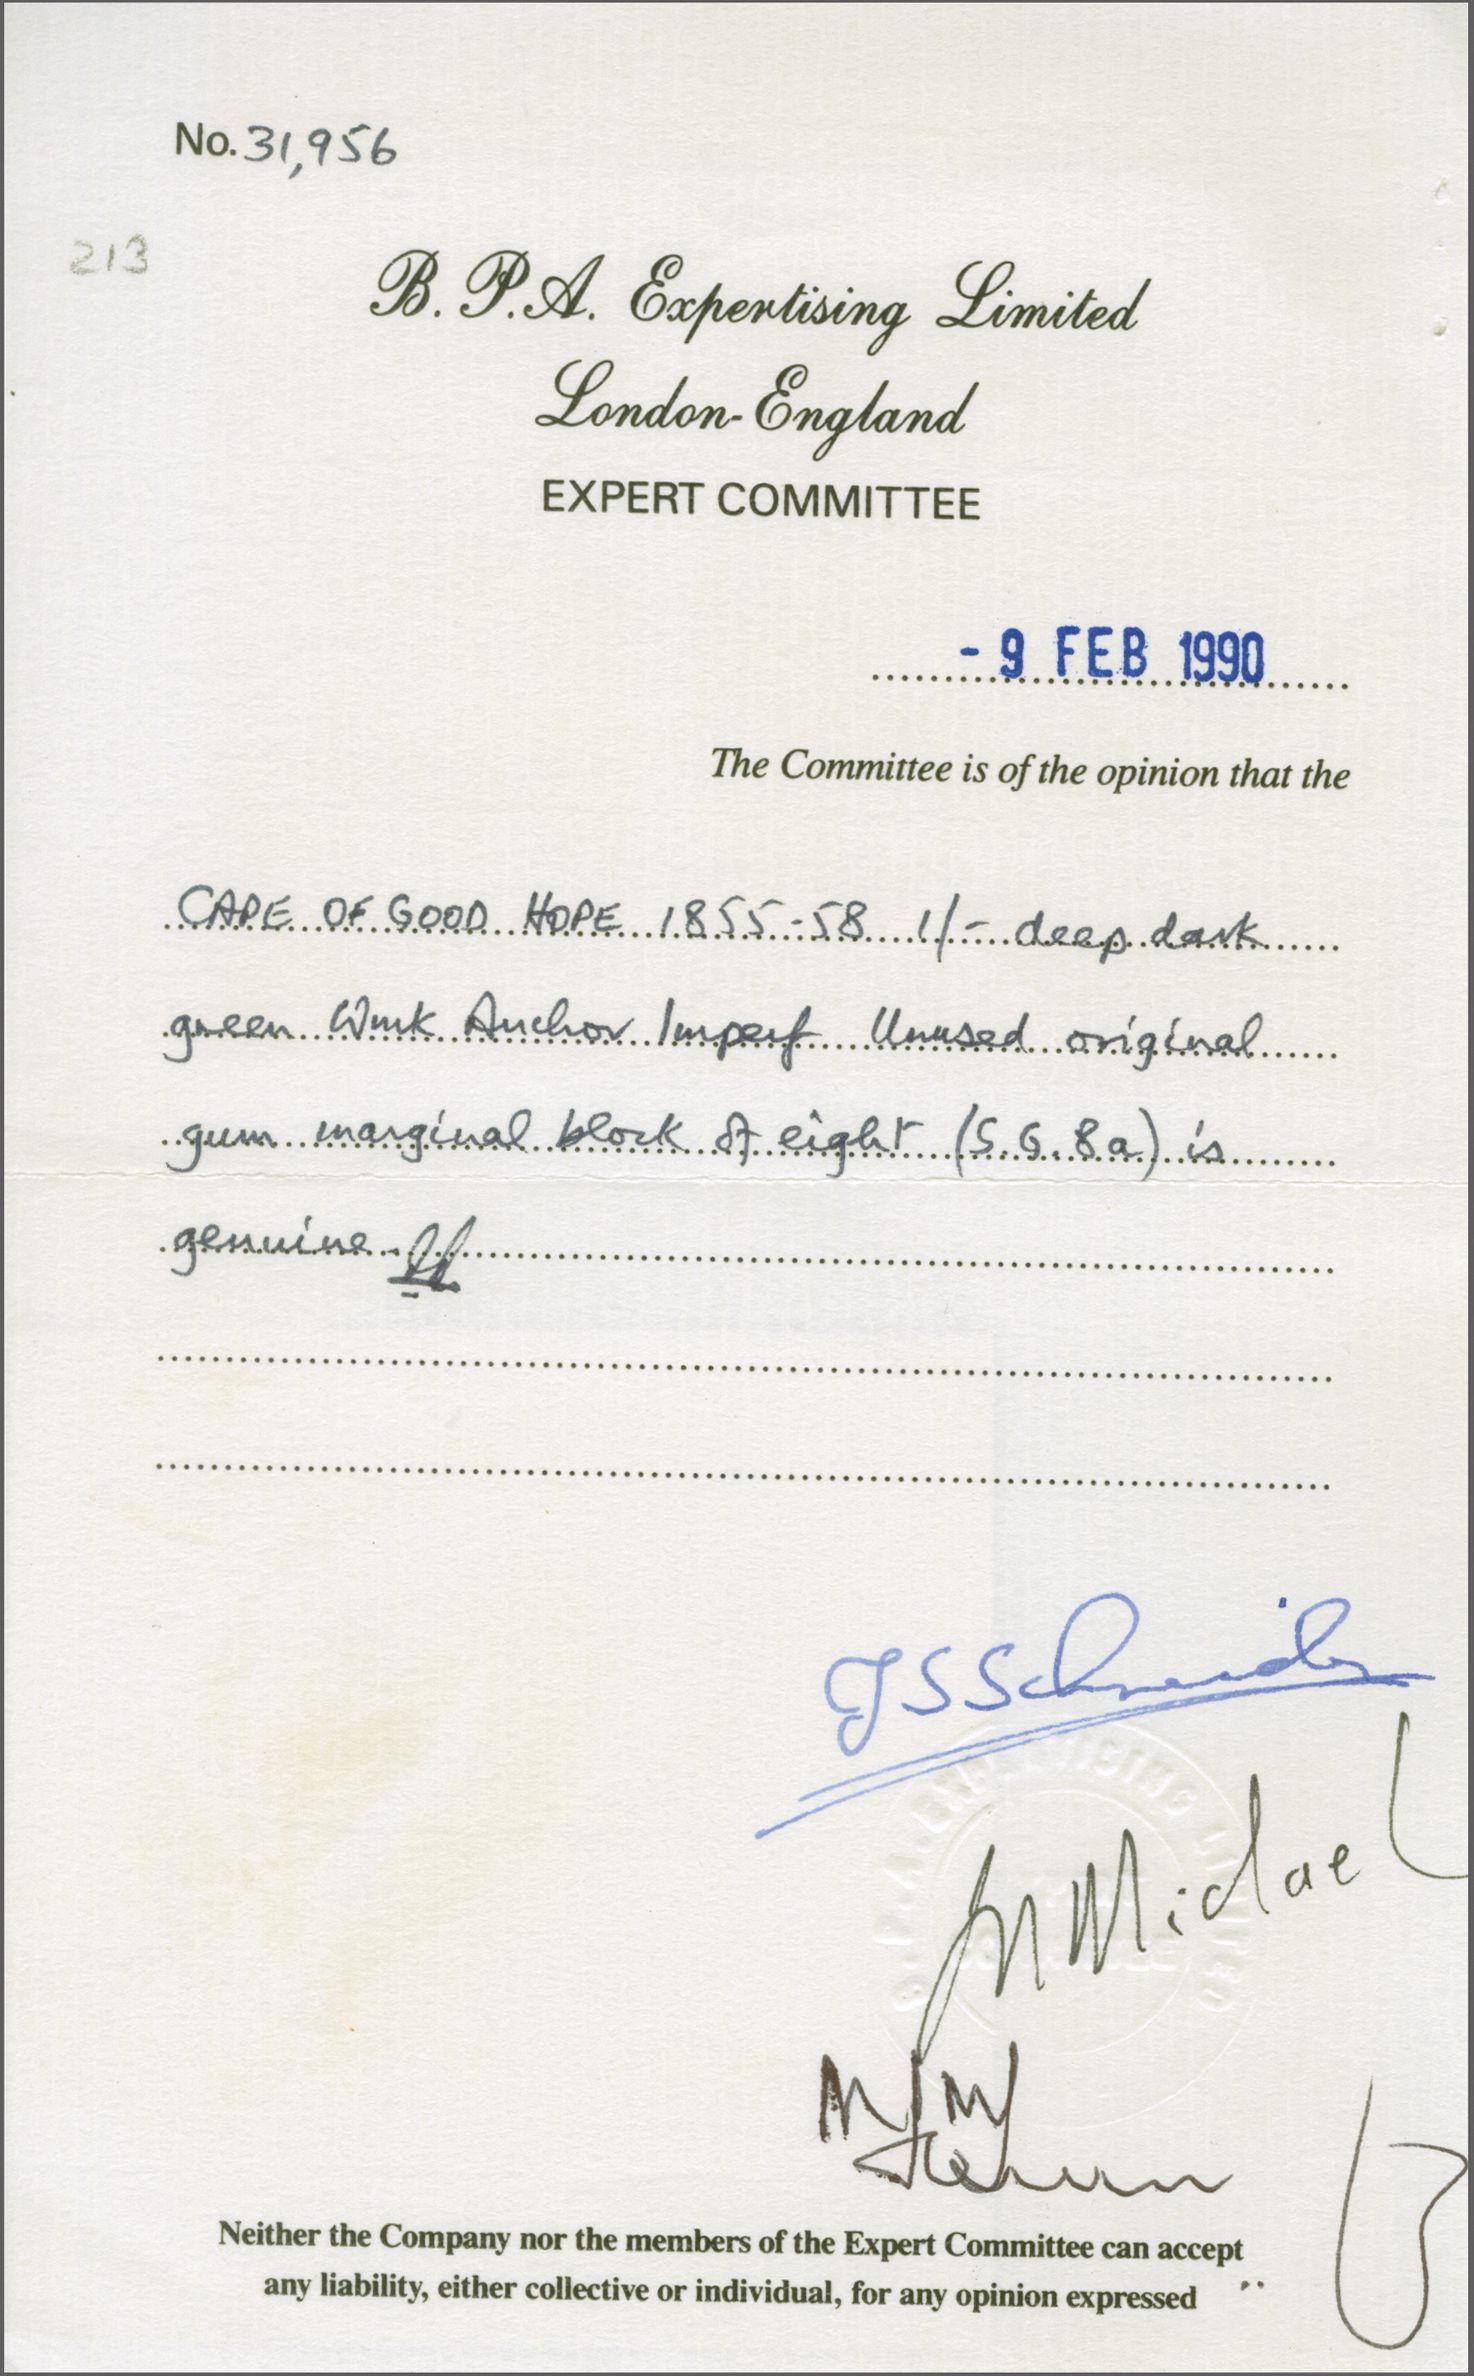 No. 31,956
213
B. P. A. Expertising Limited
London-England
EXPERT COMMITTEE
- 9 FEB 1990
The Committee is of the opinion that the
CAPE OF GOOD HOPE 1855-58 1/- deep dark
green Wmk Anchor Imperf Unused original
gum marginal block of eight (S.G. 8a) is
genuine.
JSSchneider
Michael
Neither the Company nor the members of the Expert Committee can accept
any liability, either collective or individual, for any opinion expressed